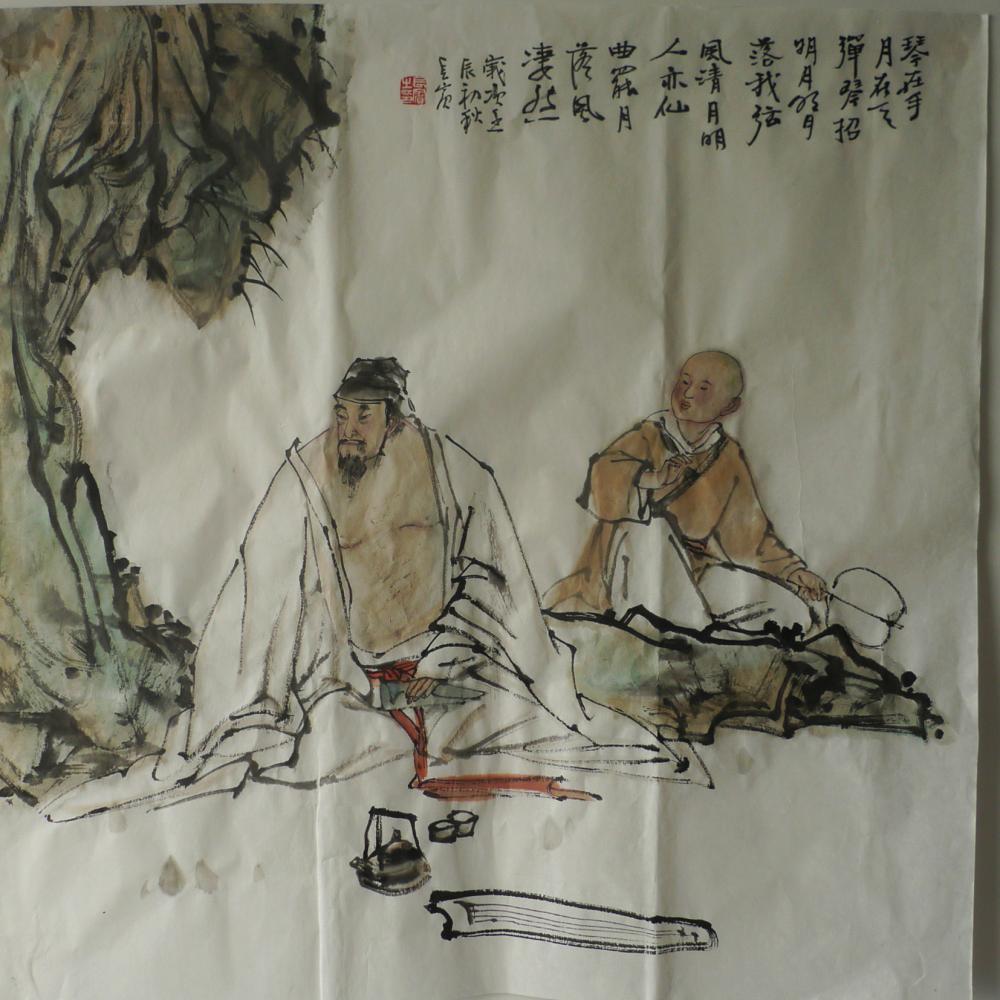 琴在手
月在天
彈琴招
明月明月
落我弦
風清月明
人亦仙
曲罷月
落風
凄然
歲次壬
辰初秋